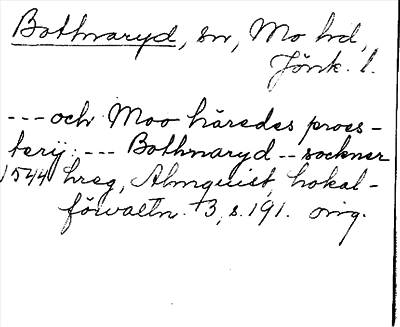 Bothnaryd, sn, Mo hd,
Jönk. l.
--- och Moo häredes proes-
terij: --- Bothnaryd -- sockner
1544 hreg, Almquist, Lokal-
förvaltn. 3, s. 191. orig.